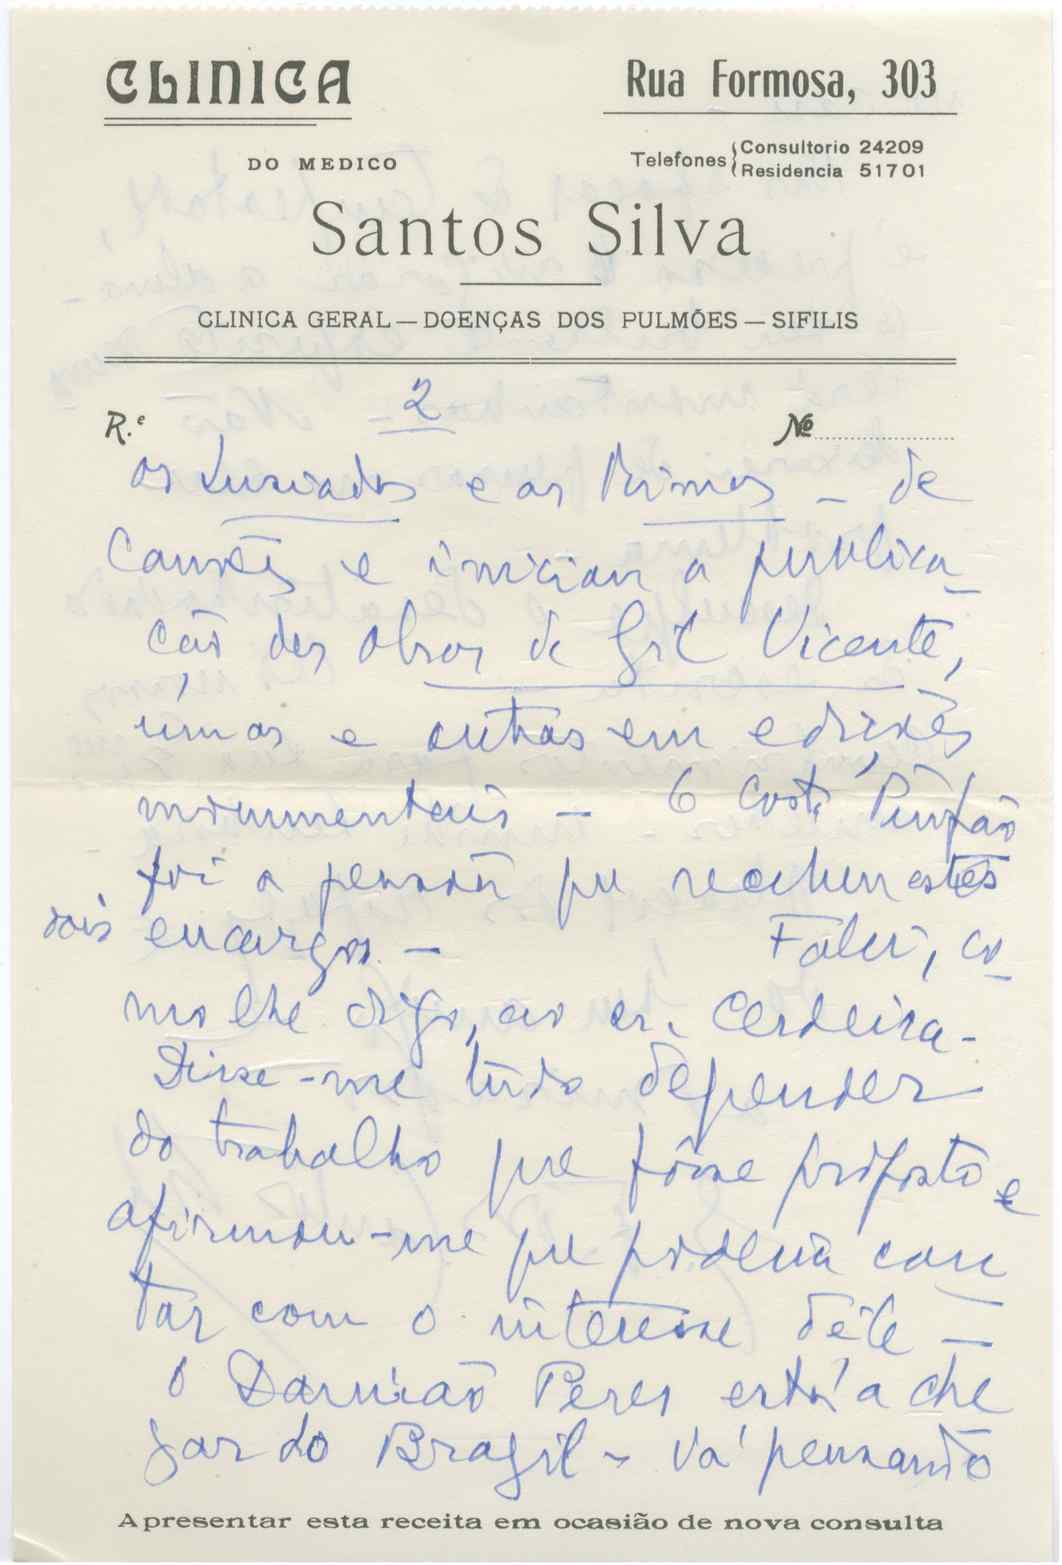 CLINICA
Rua Formosa, 303
DO MEDICO
Telefones { Consultorio 24209
Residencia 51701
Santos Silva
CLINICA GERAL — DOENÇAS DOS PULMÕES — SIFILIS
2
R.e
Nº
os Lusíadas e as Rimas – de
Camões e iniciam a publica-
ção das obras de Gil Vicente,
umas e outras em edições
monumentais – O Costa Pimpão
foi a pessoa que recebeu estes
dois encargos. – Falei, co-
mo lhe digo, ao sr. Cerdeira –
Disse-me tudo depender
do trabalho que fôsse proposto e
afirmou-me que poderia con-
tar com o interesse dêle –
O Damião Peres está a che
gar do Brasil – Vá pensando
Apresentar esta receita em ocasião de nova consulta